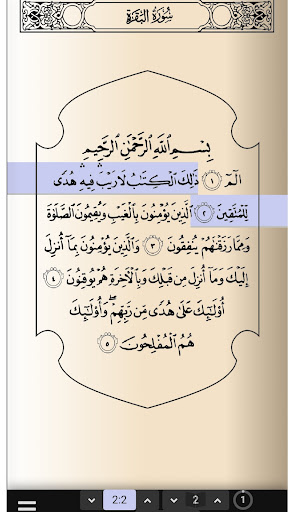 سُورَةُ البَقَرَةِ
بِسْمِ ٱللَّهِ ٱلرَّحْمَٰنِ ٱلرَّحِيمِ
الٓمٓ ١ ذَٰلِكَ ٱلْكِتَٰبُ لَا رَيْبَ ۛ فِيهِ ۛ هُدًى
لِّلْمُتَّقِينَ ٢ ٱلَّذِينَ يُؤْمِنُونَ بِٱلْغَيْبِ وَيُقِيمُونَ ٱلصَّلَوٰةَ
وَمِمَّا رَزَقْنَٰهُمْ يُنفِقُونَ ٣ وَٱلَّذِينَ يُؤْمِنُونَ بِمَآ أُنزِلَ
إِلَيْكَ وَمَآ أُنزِلَ مِن قَبْلِكَ وَبِٱلْءَاخِرَةِ هُمْ يُوقِنُونَ ٤
أُو۟لَٰٓئِكَ عَلَىٰ هُدًى مِّن رَّبِّهِمْ ۖ وَأُو۟لَٰٓئِكَ
هُمُ ٱلْمُفْلِحُونَ ٥
2:2 2 1